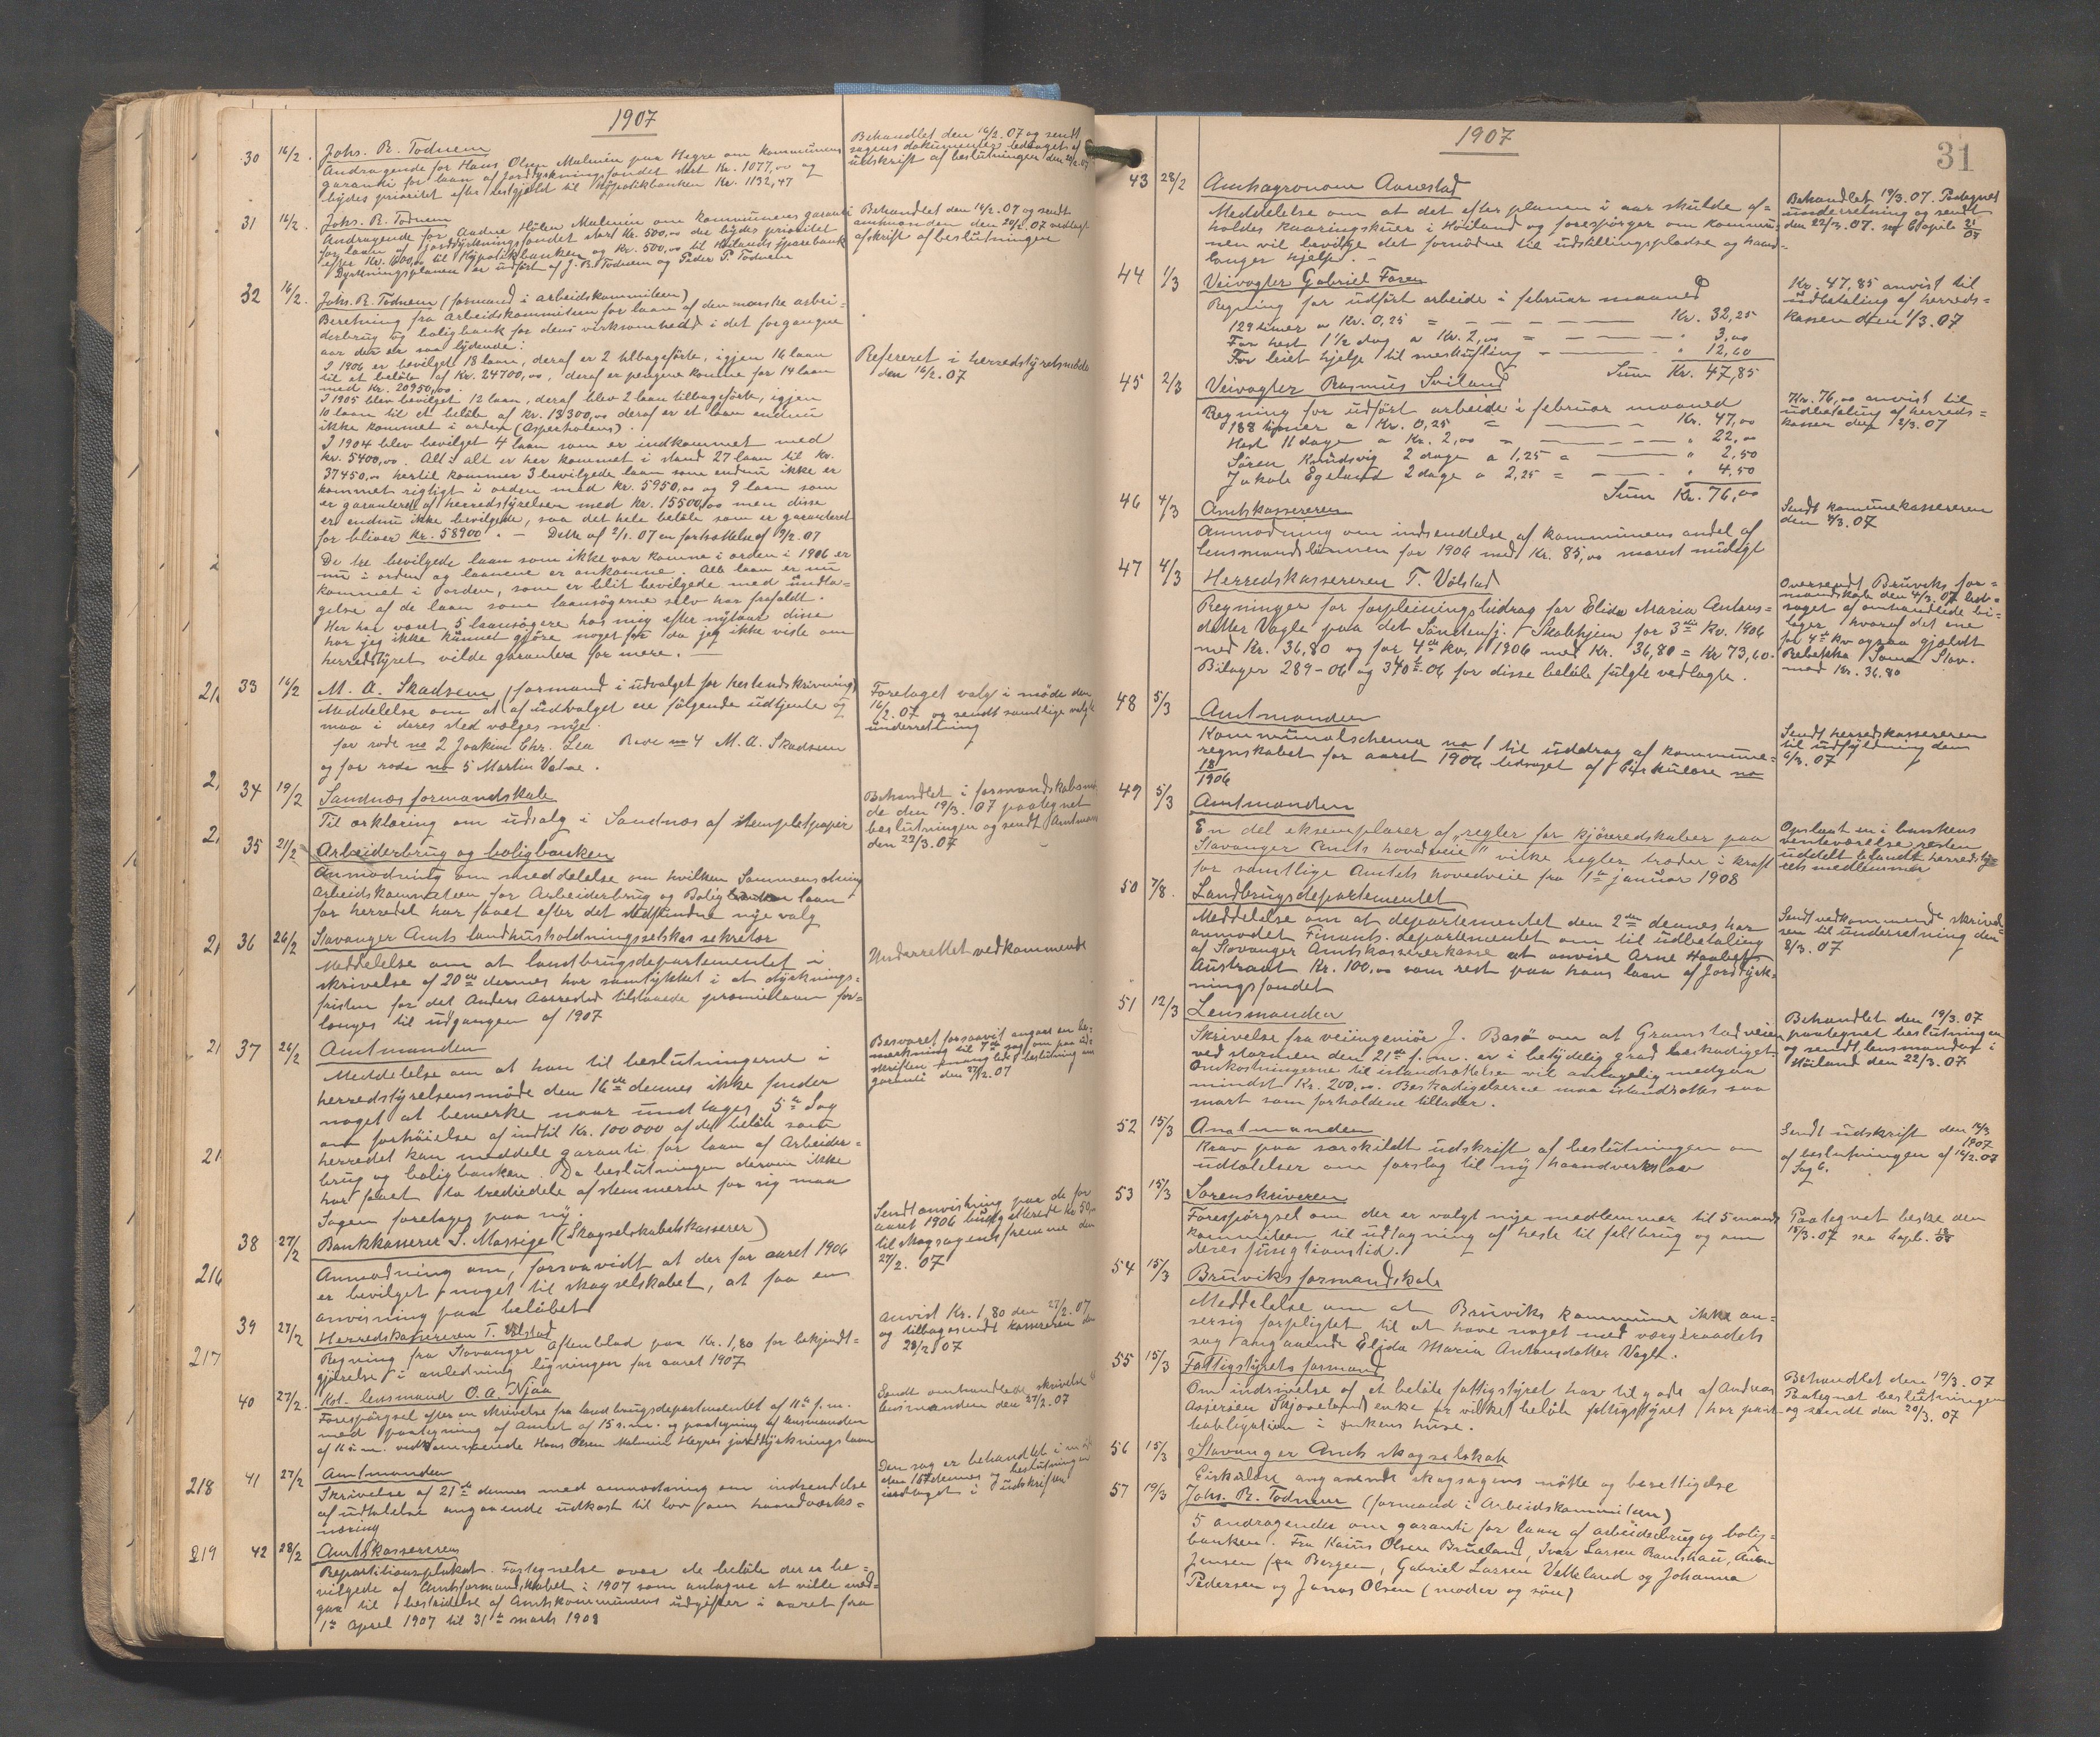 1907
30 16/2. Johs. R. Todnem
Andragende for Hans Olsen Malmin paa Hegre om kommunens
garanti for laan af jorddyrkningsfondet stort Kr. 1077,00 og
bydes prioritet efter restgjæld til Hypotikbanken Kr. 1132,47
Behandlet den 16/2. 07 og sendt
sagens dokumenter ledsaget af
udskrift af beslutningen den 20/2. 07
31 16/2. Johs. R. Todnem
Andragende for Andre Hölen Malmin om kommunens garanti
for laan af jorddyrkningsfondet stort Kr. 500,00 der bydes prioritet
efter Kr. 1600,00 til Hypotikbanken og Kr. 500,00 til Höilands sparebank
Dyrkningsplanen er udfört af J. R. Todnem og Peder P. Todnem
Behandlet den 16/2. 07 og sendt
amtmanden den 20/2. 07 vedlagt
afskrift af beslutningen
32 16/2. Johs. R. Todnem (formand i arbeidskommiteen)
Beretning fra arbeidskommiteen for laan af den norske arbei=
derbrug og boligbank for dens virksomhed i det forgangne
aar der er saa lydende:
I 1906 er bevilget 18 laan, deraf er 2 tilbageförte, igjen 16 laan
til et belöb af Kr. 24700,00, deraf er pengene komne for 14 laan
med Kr. 20950,00.
I 1905 blev bevilget 12 laan, deraf blev 2 laan tilbageförte, igjen
10 laan til et belöb af Kr. 13300,00 deraf er et laan endnu
ikke kommet i orden (Asperholens).
I 1904 blev bevilget 4 laan som er indkommet med
kr. 5400,00. Alt i alt er her kommet i stand 27 laan til Kr.
37450,00 hertil kommer 3 bevilgede laan som endnu ikke er
kommet rigtigt i orden med kr. 5950,00 og 9 laan som
er garanteret af herredstyrelsen med Kr. 15500,00 men disse
er endnu ikke bevilgede, saa det hele belöb som er garanderet
for bliver Kr. 58900. — Dette af 2/1. 07 en fortsættelse af 19/2. 07
De tre bevilgede laan som ikke var komne i orden i 1906 er
nu i orden og laanene er ankomne. Alle laan er nu
kommet i orden, som er blit bevilgede med undta=
gelse af de laan som laansögerne selv har frafaldt.
Her har været 5 laansögere hos mig efter nytaar disse
har jeg ikke kunnet gjöre noget for da jeg ikke viste om
herredstyret vilde garantere for mere. —
Refereret i herredstyretsmöde
den 16/2. 07
33 16/2 M. A. Skadsem (formand i udvalget for hesteudskrivning)
Meddelelse om at af udvalget ere fölgende udtjente og
maa i deres sted vælges nye.
for rode no 2 Joakim Chr. Lea Rode no 4 M. A. Skadsem
og for rode no 5 Martin Vatne.
Foretaget valg i möde den
16/2. 07 og sendt samtlige valgte
underretning
34 19/2 Sandnæs formandskab
Til erklæring om udsalg i Sandnæs af stempletpapir
Behandlet i formandskabsmö
de den 19/3. 07 paategnet
beslutningen og sendt Amtmand
den 22/3. 07
35 21/2 Arbeiderbrug og boligbanken
Anmodning om meddelelse om hvilken Sammensætning
arbeidskommiteen for Arbeiderbrug og Bolig laan
for herredet har faaet efter det stedfundne nye valg
36 26/2 Stavanger Amts landhusholdningselskas sekretær
Meddelelse om at landbrugsdepartementet i
skrivelse af 20de dennes har samtykket i at dyrknings=
fristen for det Anders Aarrestad tilstaaede præmielaan for=
længes til udgangen af 1907
Underrettet vedkommende
37 26/2 Amtmanden
Meddelelse om at han til beslutningerne i
herredstyrelsensmöde den 16de dennes ikke finder
noget at bemerke naar undtages 5te Sag
om forhöielse af indtil Kr. 100000 af det belöb som
herredet kan meddele garanti for laan af Arbeider=
brug og boligbanken. Da beslutningen derom ikke
har faaet to trediedele af stemmerne for sig maa
Sagen foretages paa ny.
Besvaret forsaavit angaar en be=
merkning til 7de sag om paa ud=
skriften manglet beslutning om
garanti den 27/2. 07
38 27/2 Bankkasserer S. Massige (Skogselskabetskasserer)
Anmodning om, forsaavidt at der for aaret 1906
er bevilget noget til skogselskabet, at faa en
anvisning paa belöbet
Sendt anvisning paa de for
aaret 1906 budgetterede Kr 50,00
til skogsagens fremme den
27/2. 07
39 27/2 Herredskassereren T. Völstad
Regning fra Stavanger Aftenblad paa Kr. 1,80 for bekjendt=
gjörelse i anledning ligningen for aaret 1907
Anvist Kr. 1,80 den 27/2. 07
og tilbagesendt kassereren den
28/2 07
40 27/2. Kst. lensmand O. A. Njaa
Forespörgsel efter en skrivelse fra landbrugsdepartementet af 11te f. m.
med paategning af Amtet af 15 s. m. og paategning af lensmanden
af 16 s. m. vedkommende Hans Olsen Malmin Hegres jorddyrkningslaan
Sendt omhandlede skrivelse til
lensmanden den 27/2. 07
41 27/2 Amtmanden
Skrivelse af 21de dennes med anmodning om indsendelse
af udtalelse angaaende udkast til lov om haandværks=
næring
Den sag er behandlet i möde
den 16 dennes og beslutningen
indtaget i udskriften
42 28/2 Amtskassereren
Repartitionsplakat. Fortegnelse over de belöb der er be=
vilgede af Amtsformandskabet i 1907 som antagne at ville med=
gaa til bestridelse af Amtskommunens udgifter i aaret fra
1te April 1907 til 31te marts 1908
216
217
218
219
1907
31
43 28/2 Amtsagronom Aarrestad
Meddelelse om at det efter planen i aar skulde af=
holdes kaaringskuer i Höiland og forespörger om kommu=
nen vil bevilge det fornödne til udstillingspladse og haand=
langer hjelp. —
Behandlet 19/3. 07. Paategnet
underretning og sendt
den 22/3. 07.
44 1/3 Veivogter Gabriel Foren
Regning for udfört arbeide i februar maaned
129 timer a Kr. 0,25 = Kr. 32,25
For hest 1 1/2 dag a Kr. 2,00 = " 3,00
For leiet hjelp til sneskufling " 12,60
Sum Kr. 47,85
Kr. 47,85 anvist til
udbetaling af herreds=
kassen den 1/3. 07
45 2/3 Veivogter Rasmus Sviland
Regning for udfört arbeide i februar maaned
188 timer a Kr. 0,25 = Kr. 47,00
Hest 11 dage a Kr. 2,00 = " 22,00
Sören Knudsvig 2 dage a 1,25 = " 2,50
Jakob Egeland 2 dage a 2,25 = " 4,50
Sum Kr. 76,00
Kr. 76,00 anvist til
udbetaling af herreds=
kassen den 2/3. 07
46 4/3 Amtskassereren
Anmodning om indsendelse af kommunens andel af
lensmandslönnen for 1906 med Kr. 85,00 snarest muligt
Sendt kommunekassereren
den 4/3. 07
47 4/3 Herredskassereren T. Völstad
Regninger for forpleiningsbidrag for Elida Maria Antons=
datter Vagle paa det Söndenfj. Skolehjem for 3die Kv. 1906
med Kr. 36,80 og for 4de kv. 1906 med Kr. 36,80 = Kr 73,60.
Bilager 289-06 og 340-06 for disse belöb fulgte vedlagte.
Oversendt Bruviks for=
mandskab den 4/3. 07 led=
saget af omhandlede bi=
lager hvoraf det ene
for 4de kv. ogsaa gjaldt
Rebekka Slav.
med Kr. 36.80
48 5/3 Amtmanden
Kommunalschema no 1 til uddrag af kommune=
regnskabet for aaret 1906 ledsaget af Cirkulære no
18/1906
Sendt herredskassereren
til udfyldning den
6/3. 07
49 5/3 Amtmanden
En del eksemplarer af „regler for kjöreredskaber paa
Stavanger Amts hovedveie" vilke regler træder i kraft
for samtlige Amtets hovedveie fra 1te januar 1908
Opslaat en i bankens
venteværelse resten
uddelt blandt herredsty=
rets medlemmer
50 7/3. Landbrugsdepartementet
Meddelelse om at departementet den 2den dennes har
anmodet Finants. departementet om til udbetaling
af Stavanger Amtskassererkasse at anvise Arne Haabeth
Austraat Kr. 100,00 som rest paa hans laan af Jorddyrk=
ningsfondet
Sendt vedkommende skrivel=
sen til underretning den
8/3. 07
51 12/3 Lensmanden
Skrivelse fra veiingeniör J. Basö om at Gramstadveien
ved stormen den 21de f. m. er i betydelig grad beskadiget
Omkostningerne til istandsættelsen vil antagelig medgaa
mindst Kr. 200,00. Beskadigelserne maa istandsættes saa
snart som forholdene tillader.
Behandlet den 19/3. 07
paategnet beslutningen
og sendt lensmanden i
Höiland den 22/3. 07
52 15/3 Amtmanden
Krav paa særskildt udskrift af beslutningen om
udtalelser om forslag til ny haandverkslov
Sendt udskrift den 16/3
1907
af beslutningen af 16/2. 07
Sag 6.
53 15/3 Sorenskriveren
Forespörgsel om der er valgt nye medlemmer til 5 mands
kommiteen til udtagning af heste til feltbrug og om
deres fungtionstid.
Paategnet beske den
15/3. 07
54 15/3 Bruviks formandskab
Meddelelse om at Bruviks kommune ikke an=
sersig forpligtet til at have noget med værgeraadets
sag angaaende Elida Maria Antonsdatter Vagle.
55 15/3 Fattigstyrets formand
Om indrivelse af et belöb fattigstyret har tilgode af Andreas
Assersen Skjævelands enke for vilket belöb fattigstyret har pant
i enkens huse.
Behandlet den 19/3. 07
Paategnet beslutningen
og sendt den 20/3. 07
56 15/3 Stavanger Amts skogselskab
Cirkulære angaaende skogsagens nytte og berettigelse
57 19/3 Johs. R. Todnem (formand i Arbeidskommiteen)
5 andragender om garanti for laan af arbeiderbrug og bolig=
banken. Fra Kaius Olsen Brueland, Ivar Larsen
Jensen fra Bergen, Gabriel Larsen Vatteland og Johanna
Pedersen og Jonas Olsen (moder og sön)